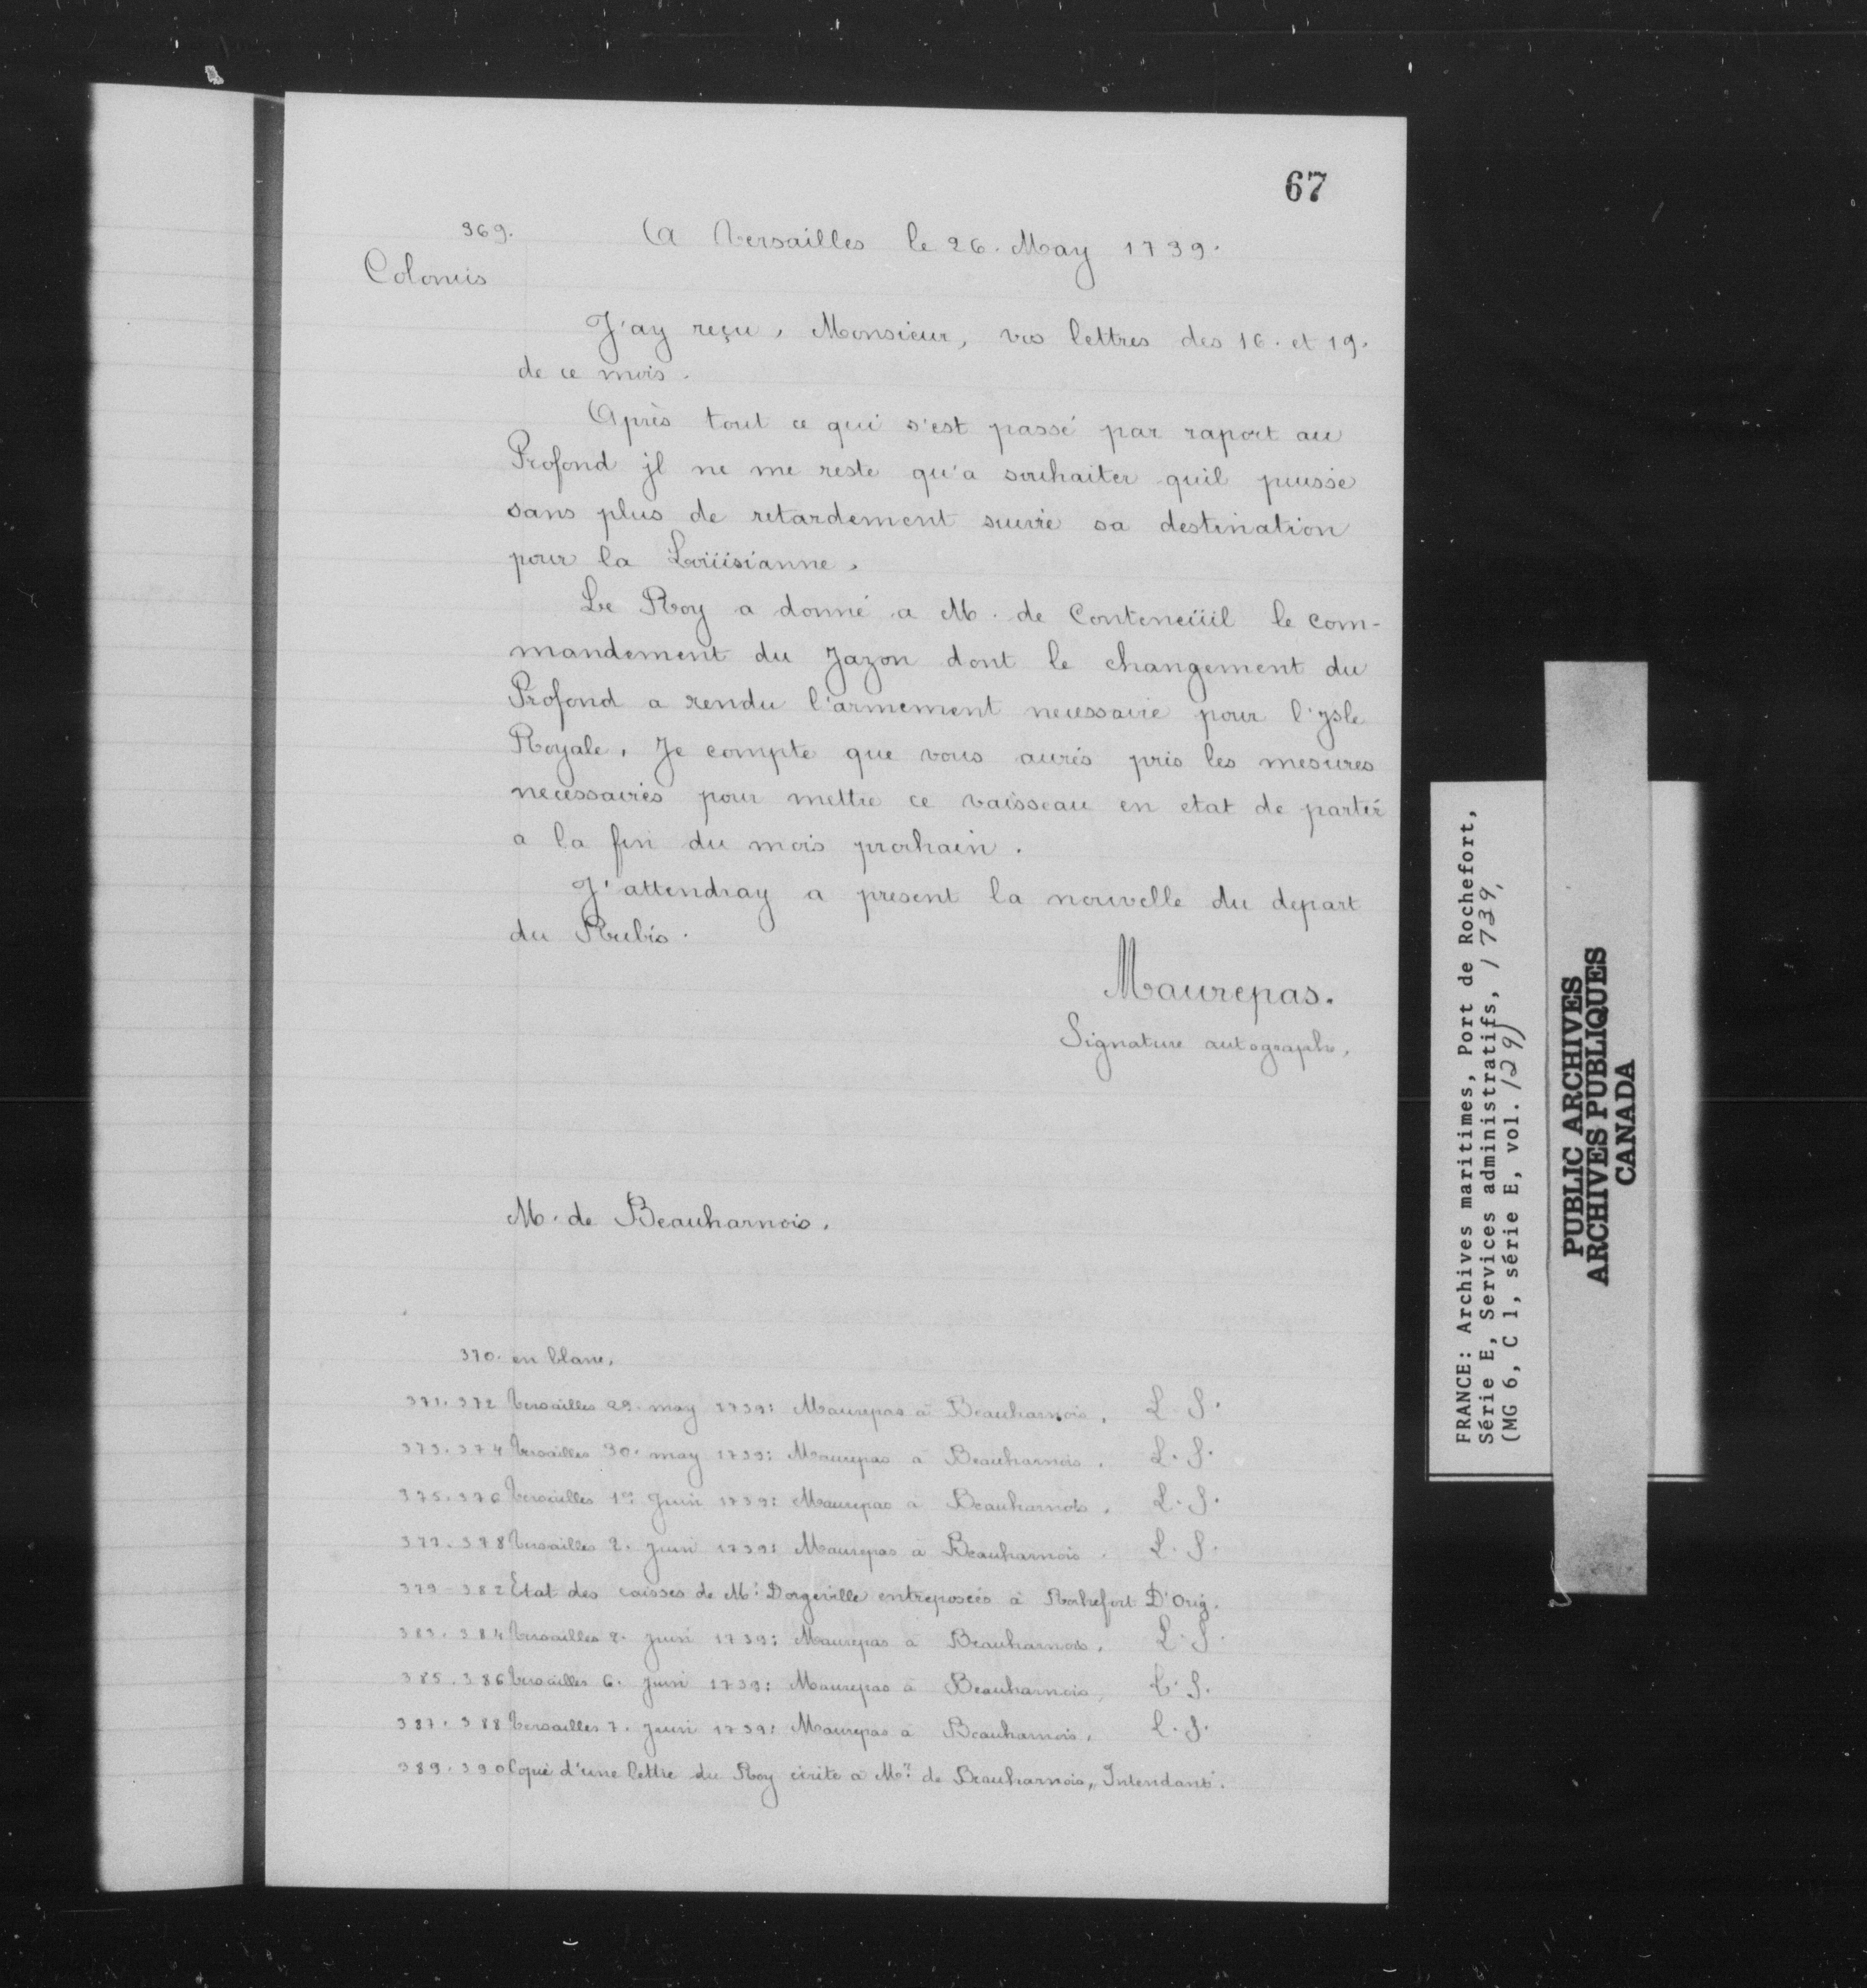 67
369.
A Versailles le 26. May 1739.
Colonies
J'ay reçu, Monsieur, vos lettres des 16. et 19.
de ce mois.
Après tout ce qui s'est passé par raport au
Profond jl ne me reste qu'a souhaiter quil puisse
sans plus de retardement suivre sa destination
pour la Loüisianne.
Le Roy a donné a M. de Conteneüil le com-
mandement du Jazon dont le changement du
Profond a rendu l'armement necessaire pour l'jsle
Royale. Je compte que vous aurés pris les mesures
necessaires pour mettre ce vaisseau en etat de partir
a la fin du mois prochain.
J'attendray a present la nouvelle du depart
du Rubis.
Maurepas.
Signature autographe.
M. de Beauharnois.
370. en blanc.
371.372 Versailles 29. may 1739: Maurepas à Beauharnois. L. S.
373.374 Versailles 30. may 1739: Maurepas a Beauharnois. L. S.
375.376 Versailles 1er Juin 1739: Maurepas a Beauharnois. L. S.
377.378 Versailles 2. Juin 1739: Maurepas à Beauharnois. L. S.
379-382 Etat des caisses de Mr Dorgeville entreposées à Rochefort D'Orig.
383.384 Versailles 2. Juin 1739: Maurepas a Beauharnois. L. S.
385.386 Versailles 6. Juin 1739: Maurepas a Beauharnois, L. S.
387.388 Versailles 7. Juin 1739: Maurepas a Beauharnois. L. S.
389.390 Copie d'une lettre du Roy écrite a Mr de Beauharnois, Intendant.
FRANCE: Archives maritimes, Port de Rochefort,
Série E, Services administratifs, 1739,
(MG 6, C 1, série E, vol. 129)
PUBLIC ARCHIVES
ARCHIVES PUBLIQUES
CANADA